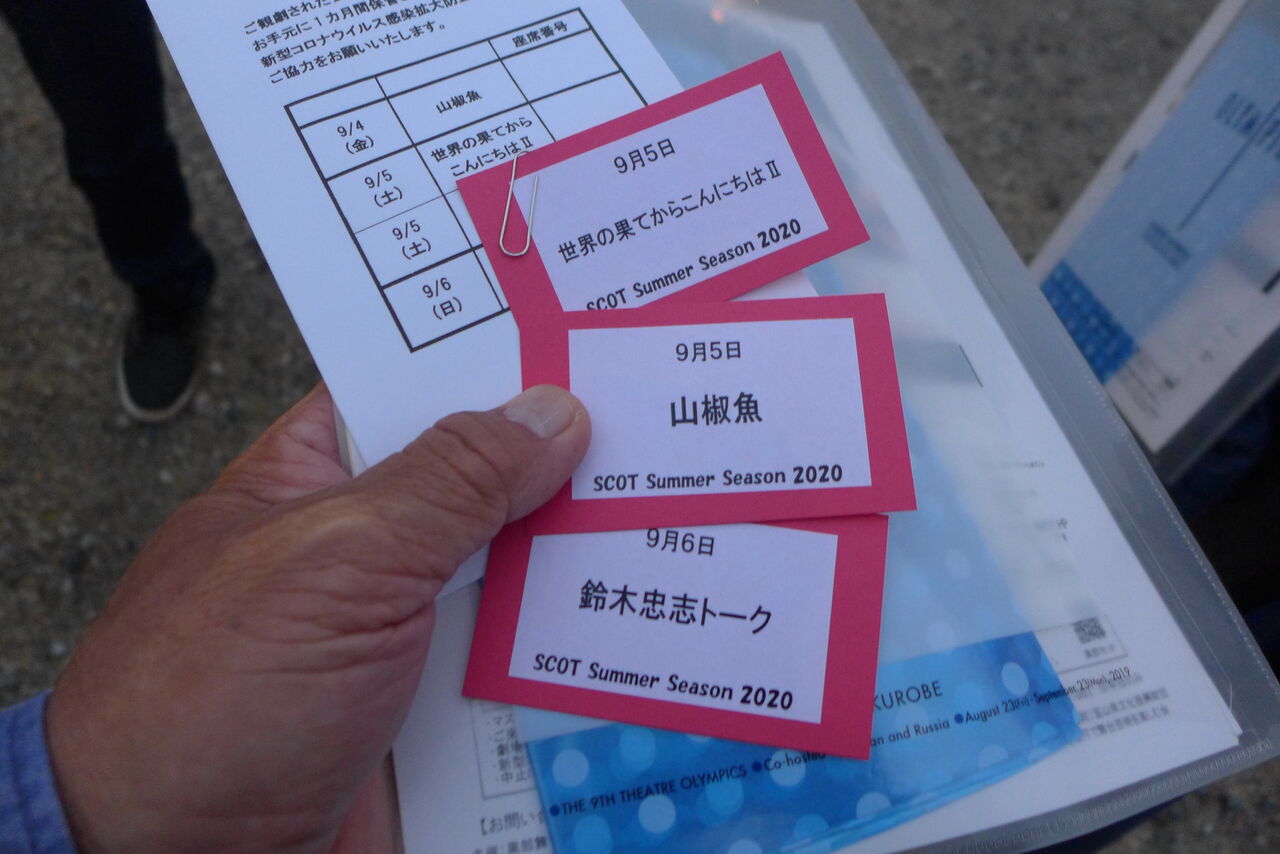 ご観劇された
お手元に1カ月間保管
新型コロナウイルス感染拡大防止
ご協力をお願いいたします。
座席番号
9/4
(金)
山椒魚
9/5
(土)
世界の果てから
こんにちはⅡ
9/5
(土)
9/6
(日)
9月5日
世界の果てからこんにちはⅡ
SCOT Summer Season 2020
9月5日
山椒魚
SCOT Summer Season 2020
9月6日
鈴木忠志トーク
SCOT Summer Season 2020
KUROBE
an and Russia ●August 23(Fri)-September 23(Mon), 2019
●THE 9TH THEATRE OLYMPICS ●Co-hosted
・マス
・ご来
・劇場
・新型
・中止
【お問い合